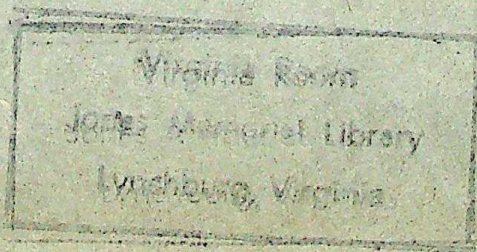 Virginia Room
Jones Memorial Library
Lynchburg, Virginia